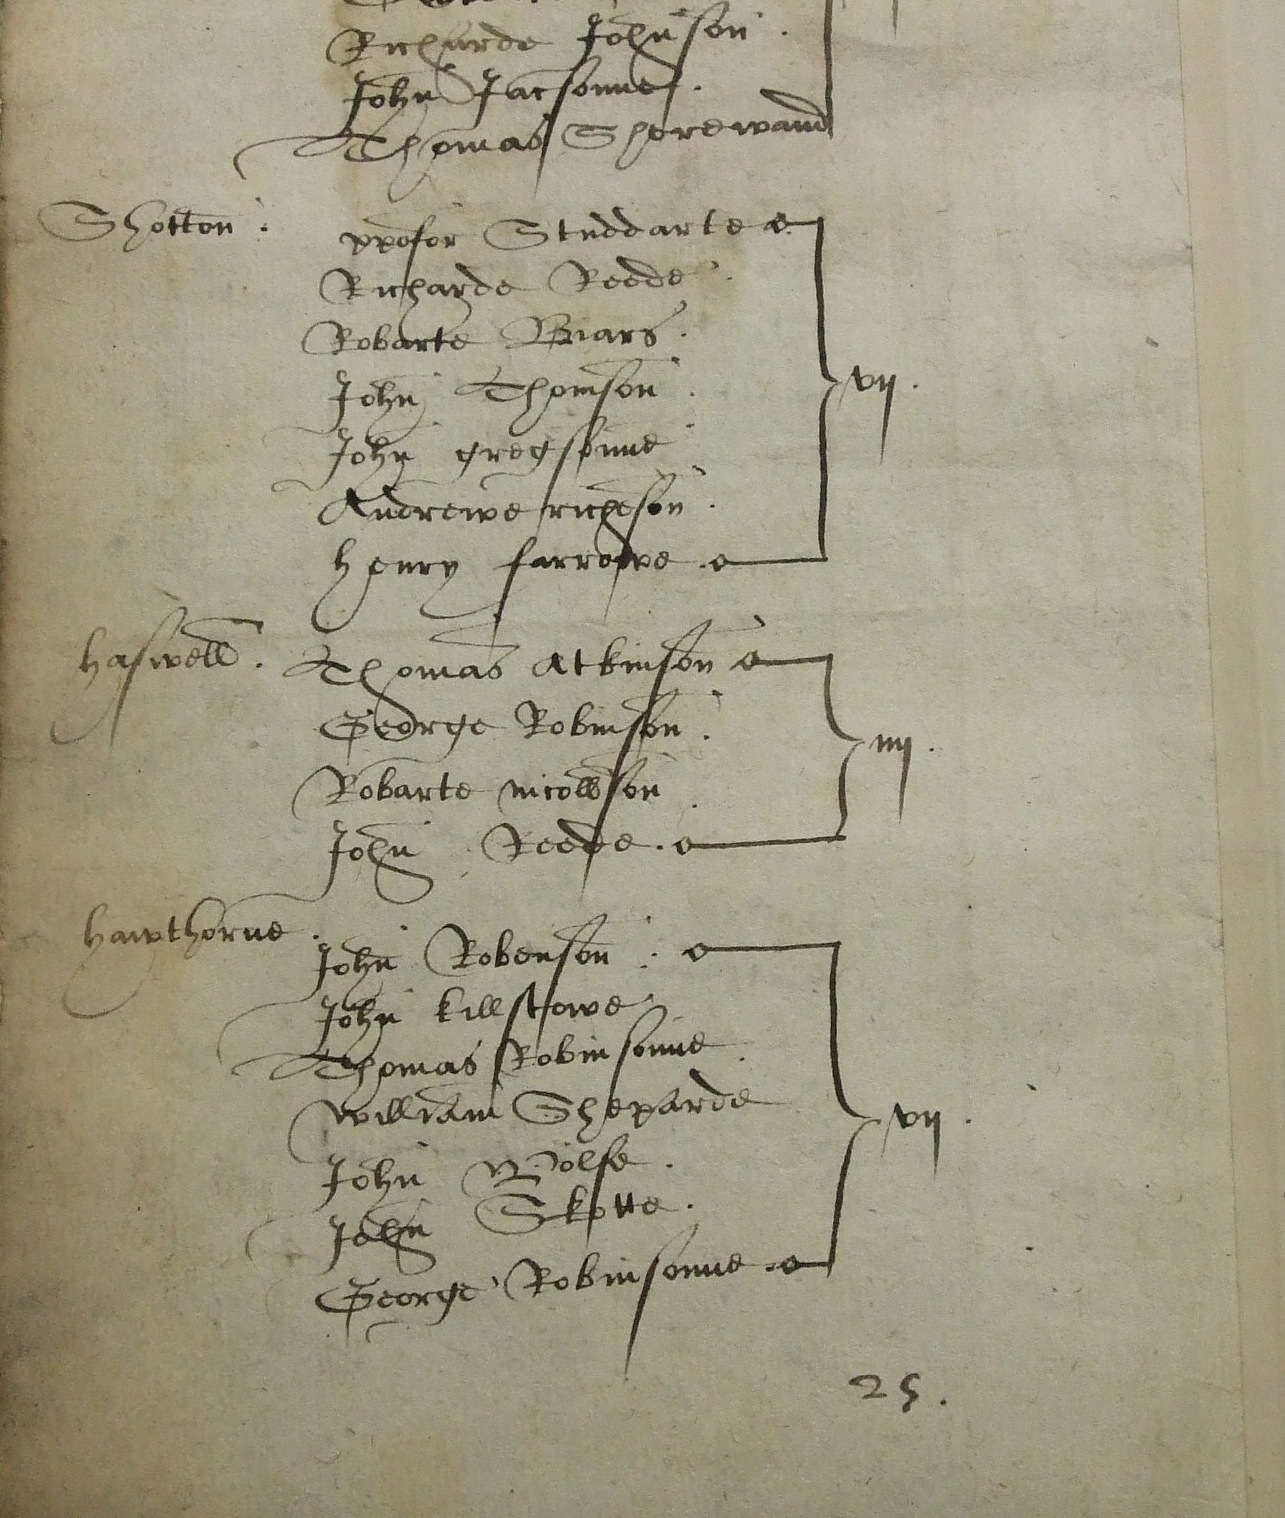 Richarde Johnson .
John Jacsonne .
Thomas Sherewand
Shotton . Studdarte
Richarde Reede .
Robarte Briars .
John Thomson .
John gregsonne
Andrewe richeson .
henry farrowe . vij .
haswell . Thomas Atkinson
George Robinson .
Robarte nicollson
John Reede . iiij .
hawthorne . John Robenson .
John killstowe
Thomas Robinsonne .
William Sheparde
John Wolfe .
John Skotte .
George Robinsonne vij .
25 .